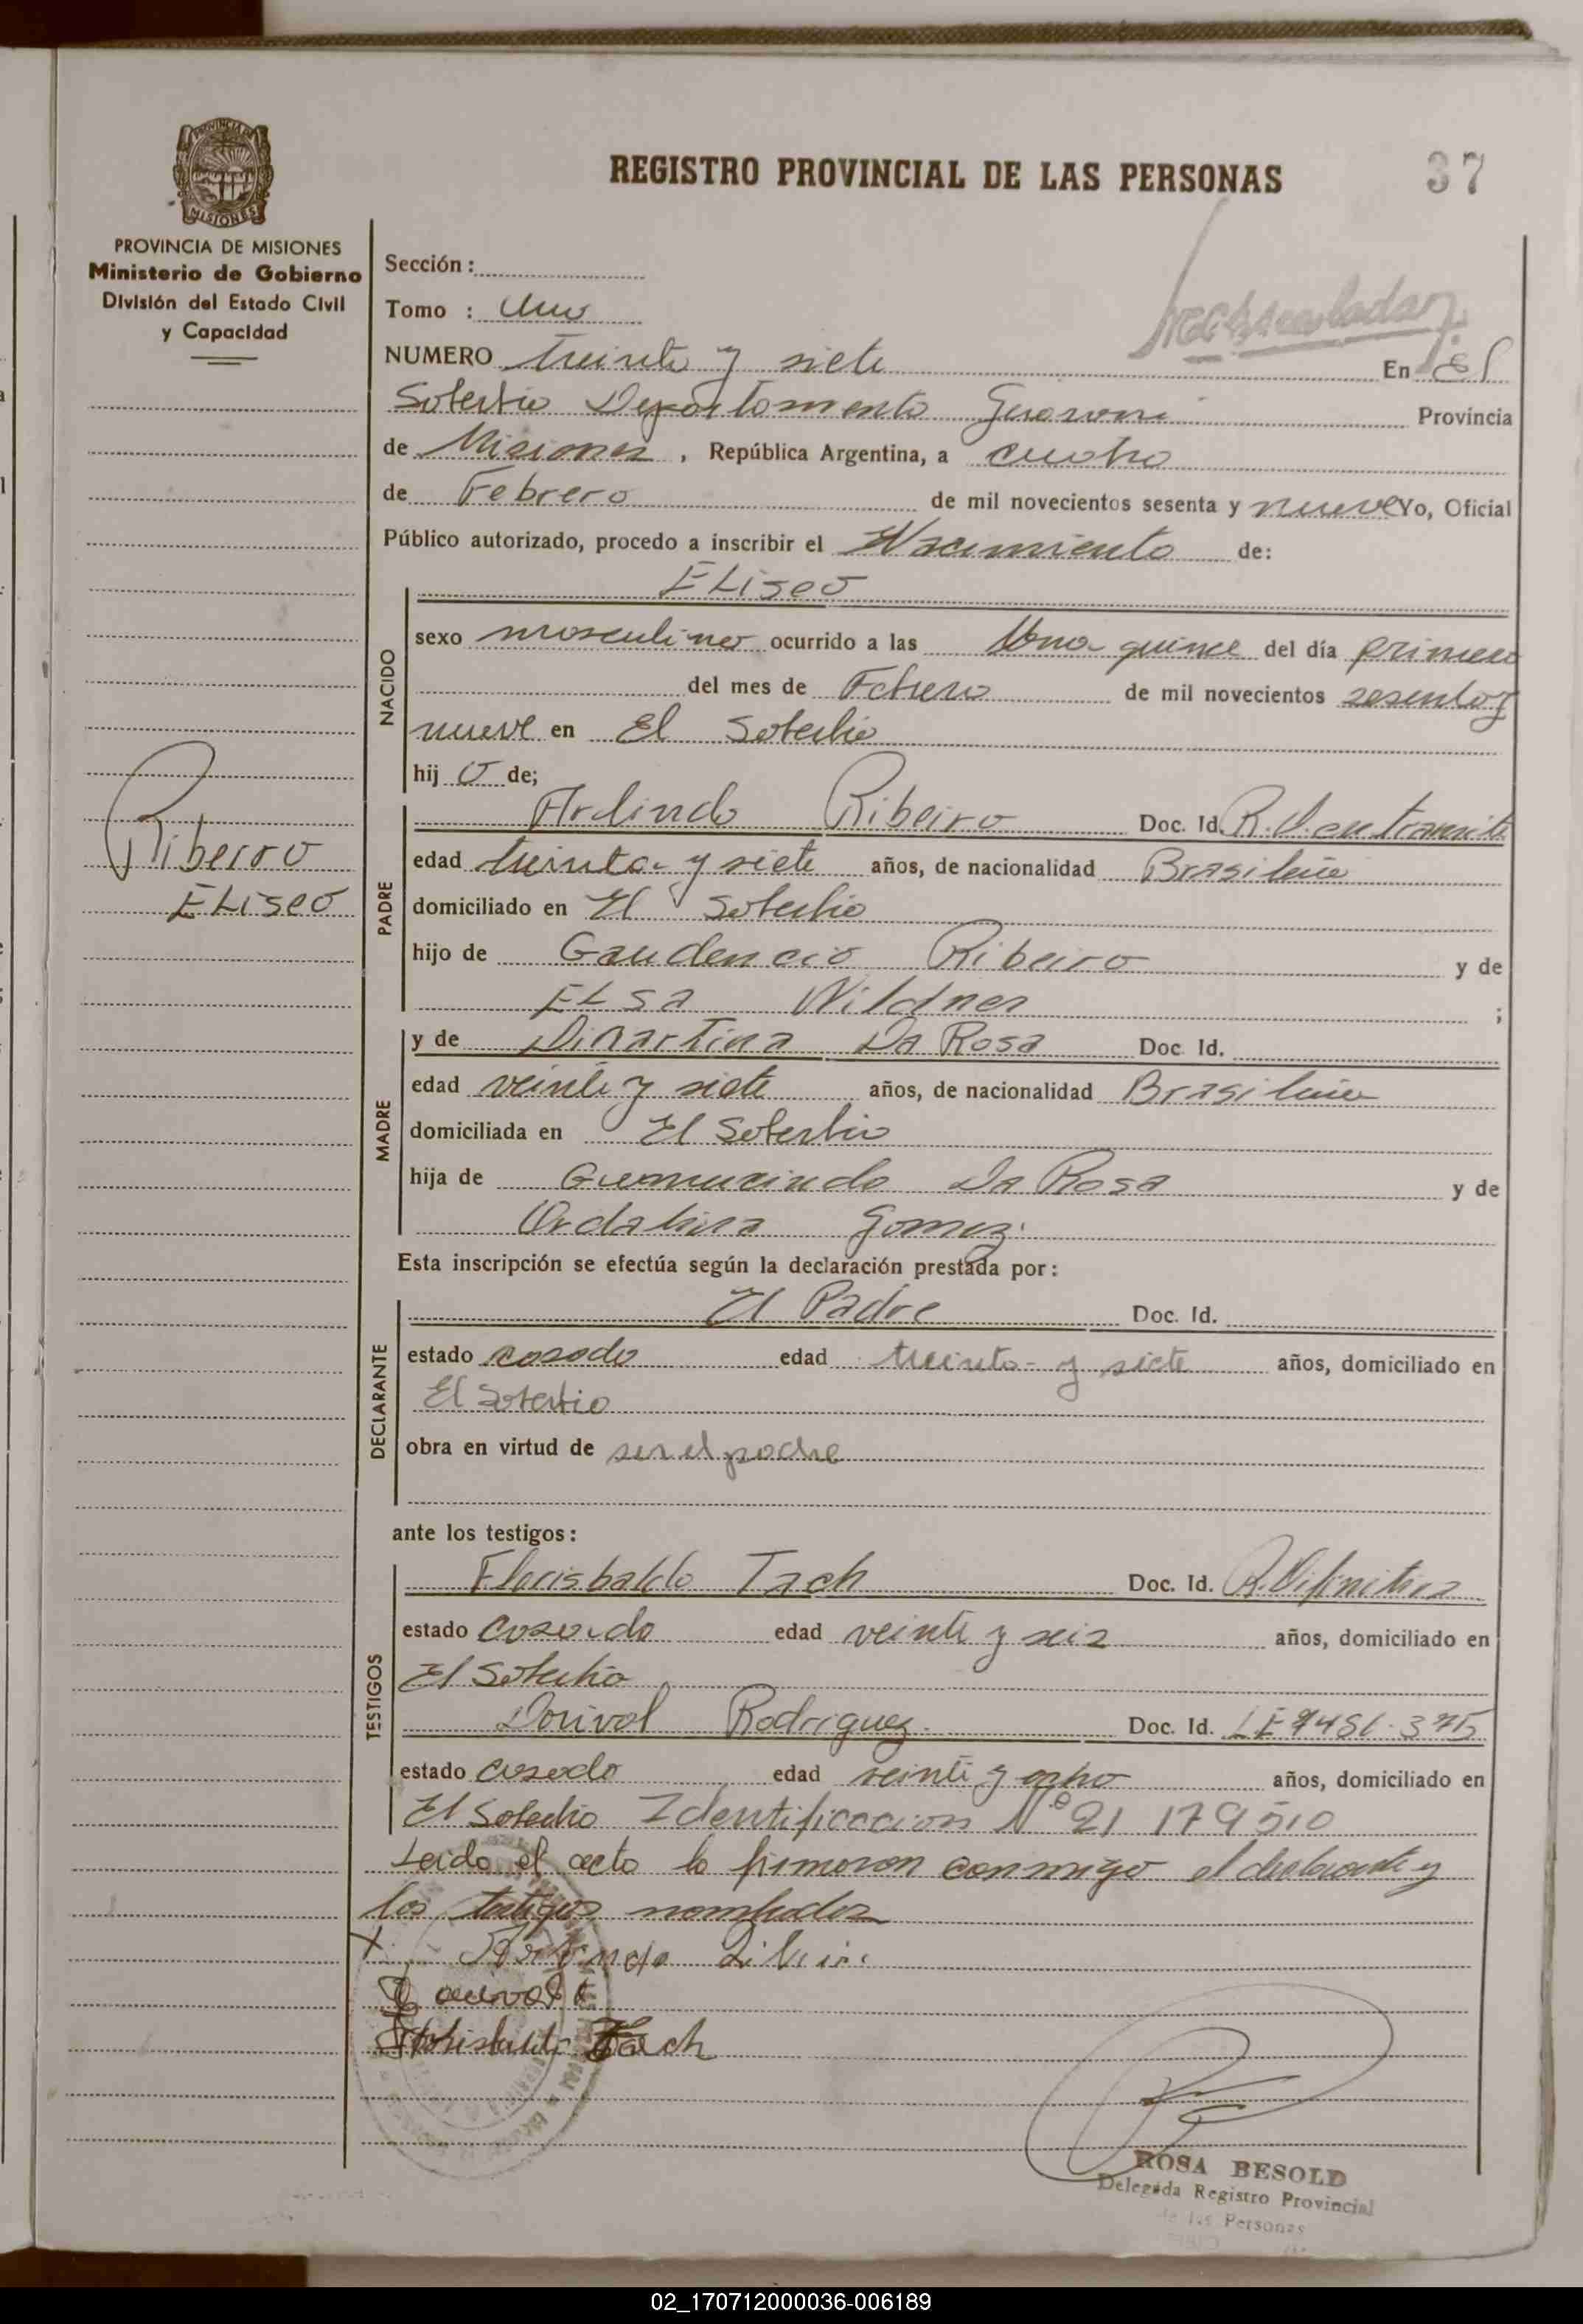 REGISTRO PROVINCIAL DE LAS PERSONAS
37
PROVINCIA DE MISIONES
PROVINCIA DE MISIONES
Ministerio de Gobierno
División del Estado Civil
y Capacidad
Sección :
Tomo : Uno
NUMERO treinta y siete En El
Soberbio Departamento Guarani Provincia
de Misiones, República Argentina, a cuatro
de Febrero de mil novecientos sesenta y nueve Yo, Oficial
Público autorizado, procedo a inscribir el Nacimiento de:
ELiseo
NACIDO
sexo masculino ocurrido a las Una quince del día primero
del mes de Febrero de mil novecientos sesenta y
nueve en El Soberbio
hij o de;
Ribeiro
ELiseo
PADRE
Arlindo Ribeiro Doc. Id. R. D. en tramite
edad treinta y siete años, de nacionalidad Brasileña
domiciliado en El Soberbio
hijo de Gaudencio Ribeiro y de
ELsa Wildner ;
MADRE
y de Dinartina Da Rosa Doc. Id.
edad veinte y siete años, de nacionalidad Brasileña
domiciliada en El Soberbio
hija de Gumucindo Da Rosa y de
Gomez
Esta inscripción se efectúa según la declaración prestada por :
DECLARANTE
El Padre Doc. Id.
estado casado edad treinta y siete años, domiciliado en
El Soberbio
obra en virtud de ser el padre
ante los testigos :
TESTIGOS
Florisbaldo Tach Doc. Id. R. Difinitiva
estado casado edad veinte y seis años, domiciliado en
El Soberbio
Dorival Rodriguez Doc. Id. LE 7481.375
estado casado edad veinte y ocho años, domiciliado en
El Soberbio Identificacion Nº 21 179 510
Leido el acta lo firmaron conmigo el declarante y
los testigos nombrados
Tach
ROSA BESOLD
Delegada Registro Provincial
de las Personas
02_170712000036-006189